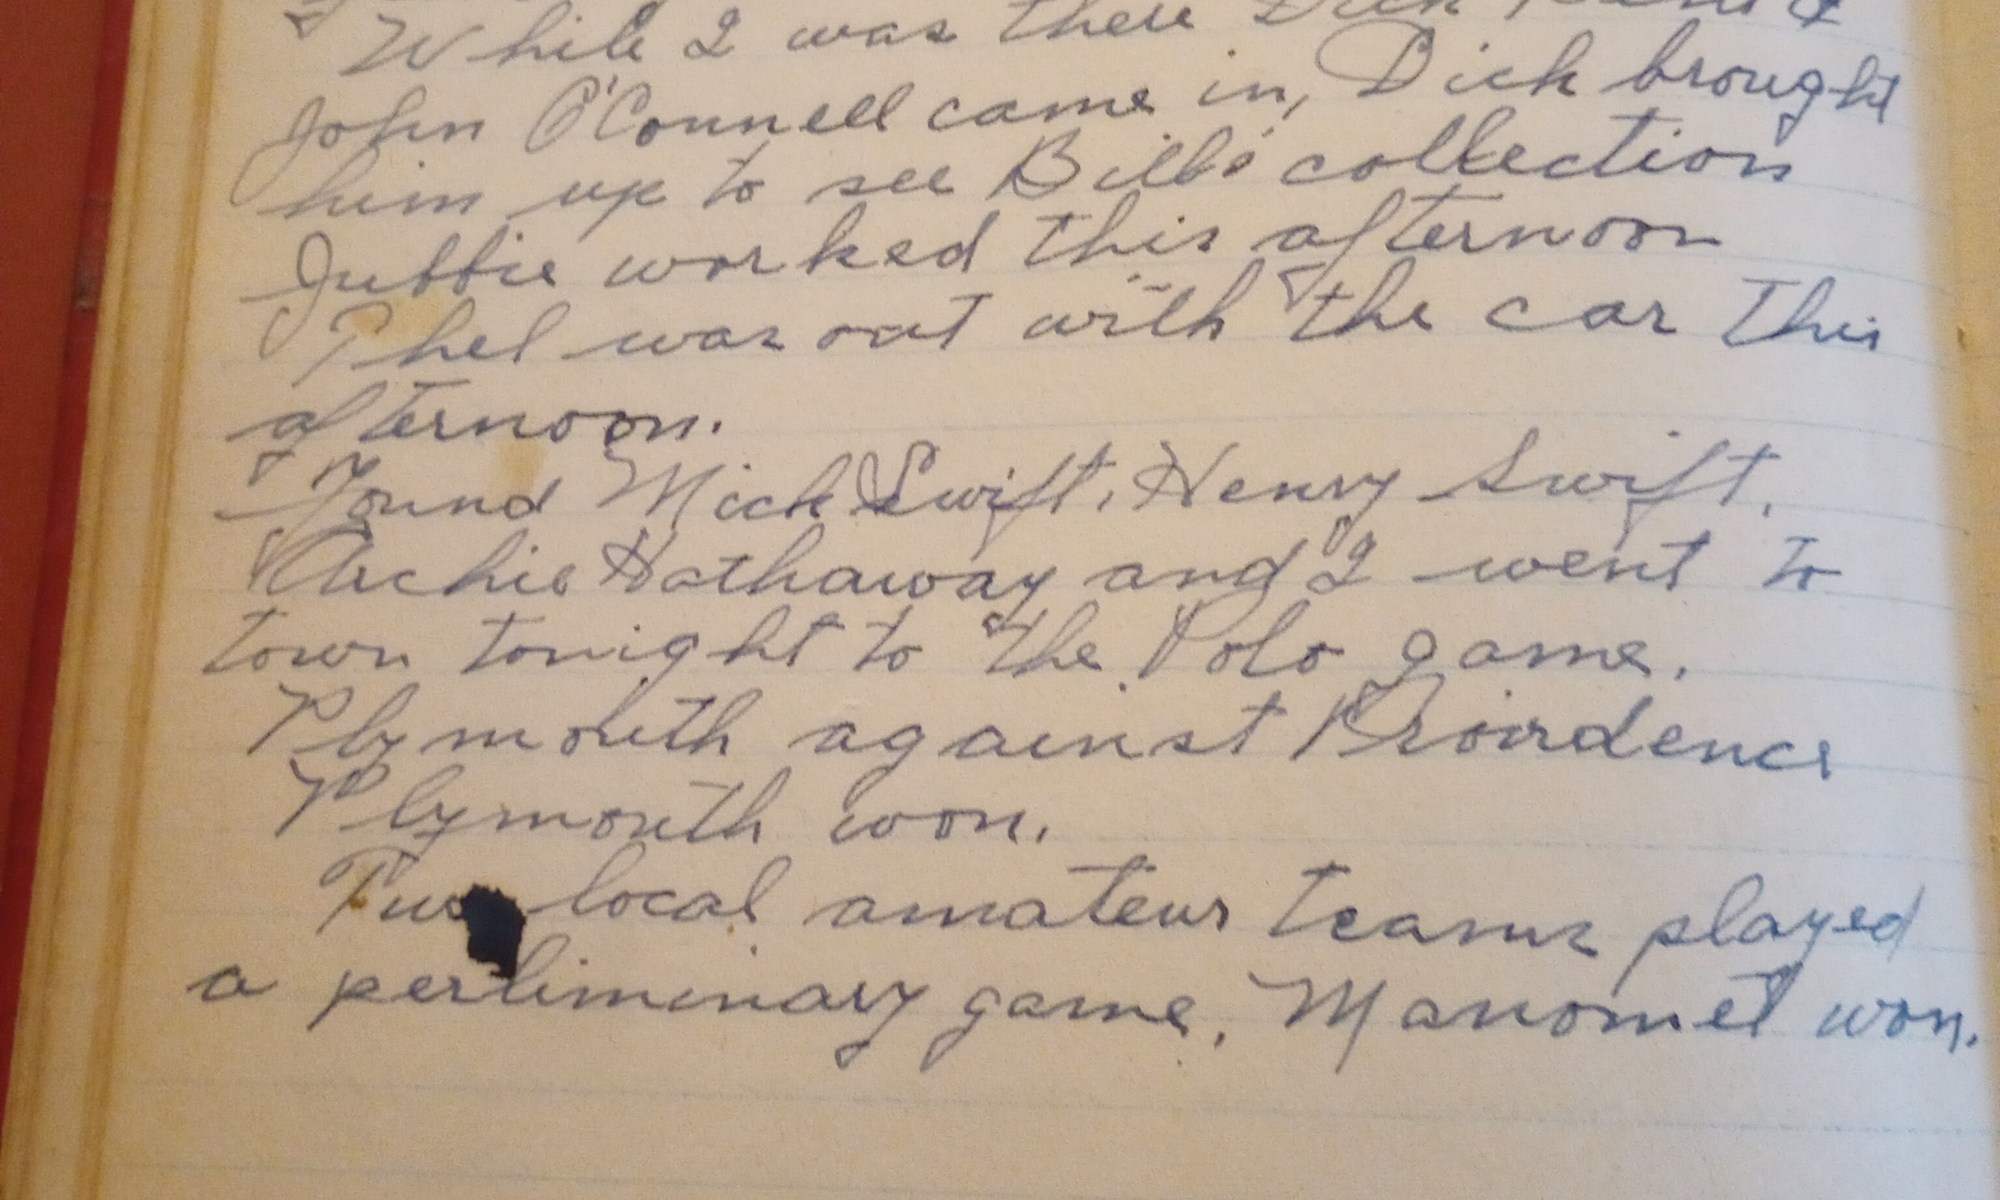 While I was there Dick &
John O'Connell came in, Dick brought
him up to see Bill's collection
Jubbie worked this afternoon
Phel was out with the car this
afternoon.
Found Mick Swift, Henry Swift,
Archie Hathaway and I went to
town tonight to the Polo game.
Plymouth against Providence
Plymouth won.
Two local amateur teams played
a perliminary game, Manomet won.